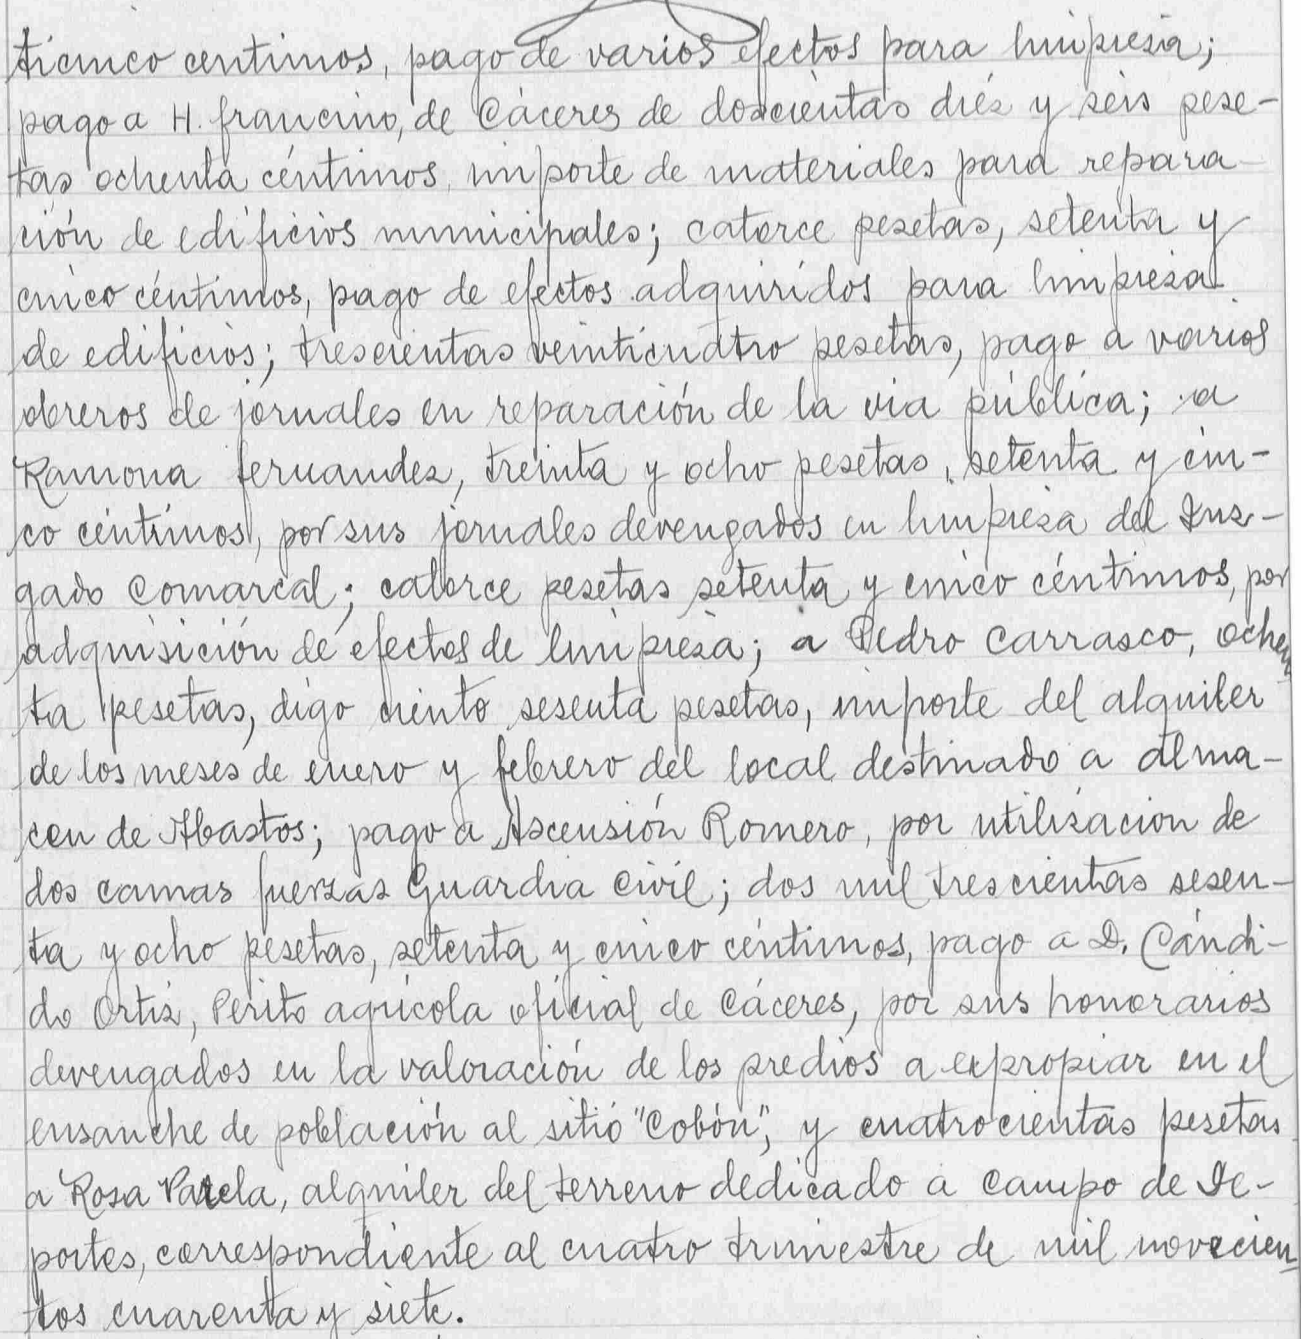 ticinco centimos, pago de varios efectos para limpieza;
pago a H. francino, de Cáceres de doscientas diéz y séis pese-
tas ochenta céntimos, importe de materiales para repara-
ción de edificios municipales; catorce pesetas, setenta y
cinco céntimos, pago de efectos adquiridos para limpieza
de edificios; trescientas veinticuatro pesetas, pago a varios
obreros de jornales en reparación de la via pública; a
Ramona fernandez, treinta y ocho pesetas, setenta y cin-
co céntimos, por sus jornales devengados en limpieza del Juz-
gado Comarcal; catorce pesetas setenta y cinco céntimos, por
adquisición de efectos de limpieza; a Pedro Carrasco, ochen
ta pesetas, digo ciento sesenta pesetas, importe del alquiler
de los meses de enero y febrero del local destinado a alma-
cen de Abastos; pago a Ascensión Romero, por utilizacion de
dos camas fuerzas Guardia Civil; dos mil trescientas sesen-
ta y ocho pesetas, setenta y cinco céntimos, pago a D. Cándi-
do Ortiz, Perito agricola oficial de Cáceres, por sus honorarios
devengados en la valoración de los predios a expropiar en el
ensanche de población al sitio "Cobón", y cuatrocientas pesetas
a Rosa Varela, alquiler del terreno dedicado a Campo de De-
portes, correspondiente al cuatro trimestre de mil novecien-
tos cuarenta y siete.